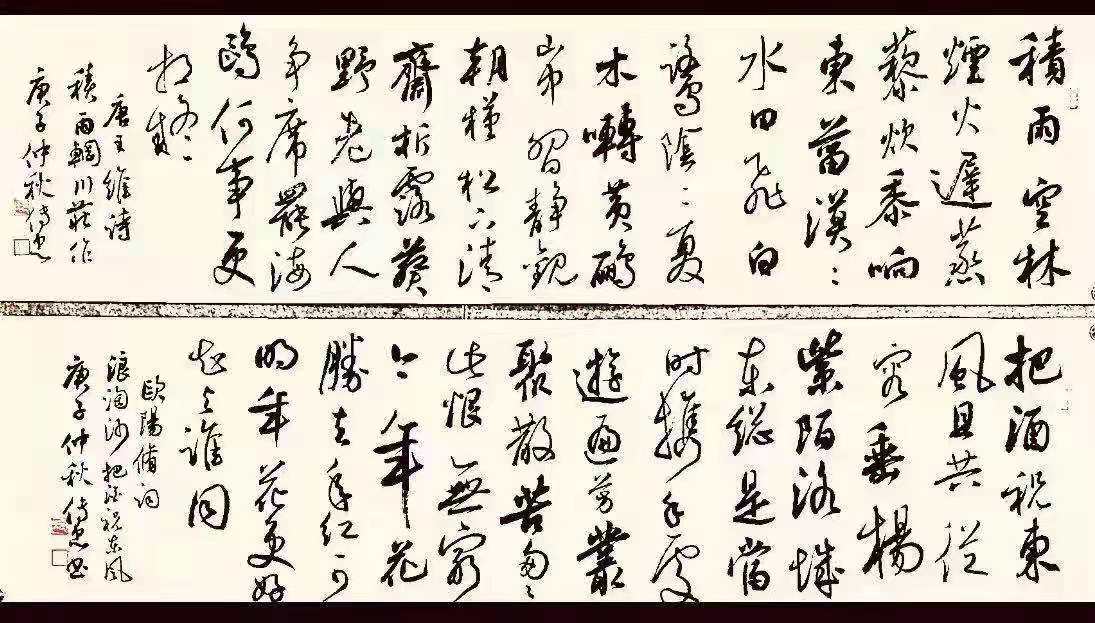 積雨空林
煙火遲蒸
藜炊黍响
東菑漠〻
水田飛白
鷺陰〻夏
木囀黄鸝
山中習静觀
朝槿松下清
齋折露葵
野老與人
争席罷海
鷗何事更
相疑
唐王維詩
積雨輞川莊作
庚子仲秋
把酒祝東
風且共從
容垂楊
紫陌洛城
東總是當
時攜手處
遊遍芳叢
聚散苦匆〻
此恨無窮
今年花
勝去年紅可
明年花更好
知与誰同
歐陽脩詞
浪淘沙把酒祝東風
庚子仲秋